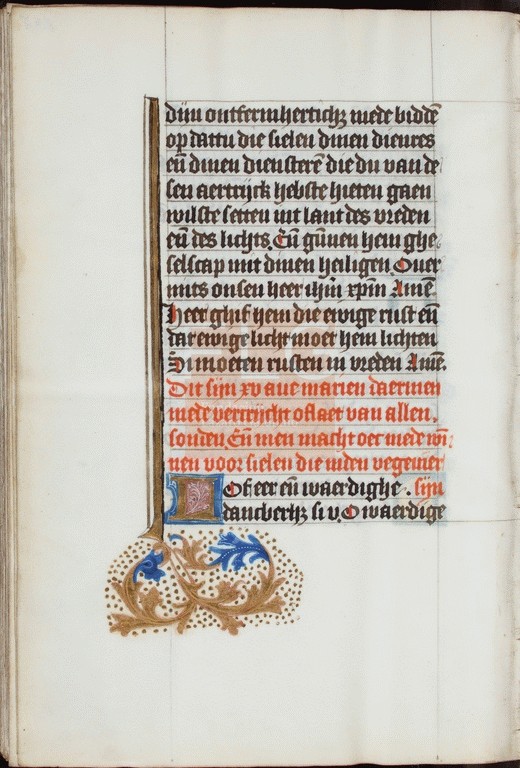 dijn ontfermhertichz mede biddē
op dattu die sielen dinen dienres
eñ dinen diensterē die du van de
sen aertrijck hebste hieten gaen
wilste setten int lant des vreden
eñ des lichts. Eñ gūnen hem ghe
selscap mit dinen heiligen Ouer
mits onsen heer ihm̄ xpm̄ Amē.
Heer ghif hem die ewige rust eñ
dat ewige licht moet hem lichten
Si moeten rusten in vreden Amē.
Dit sijn xv aue marien daermen
mede vercrijcht oflaet van allen
sonden Eñ men macht oec mede wī
nen voor sielen die inden vegeuier
Of heer eñ waerdighe. sijn
danckerhz si v. O waerdige